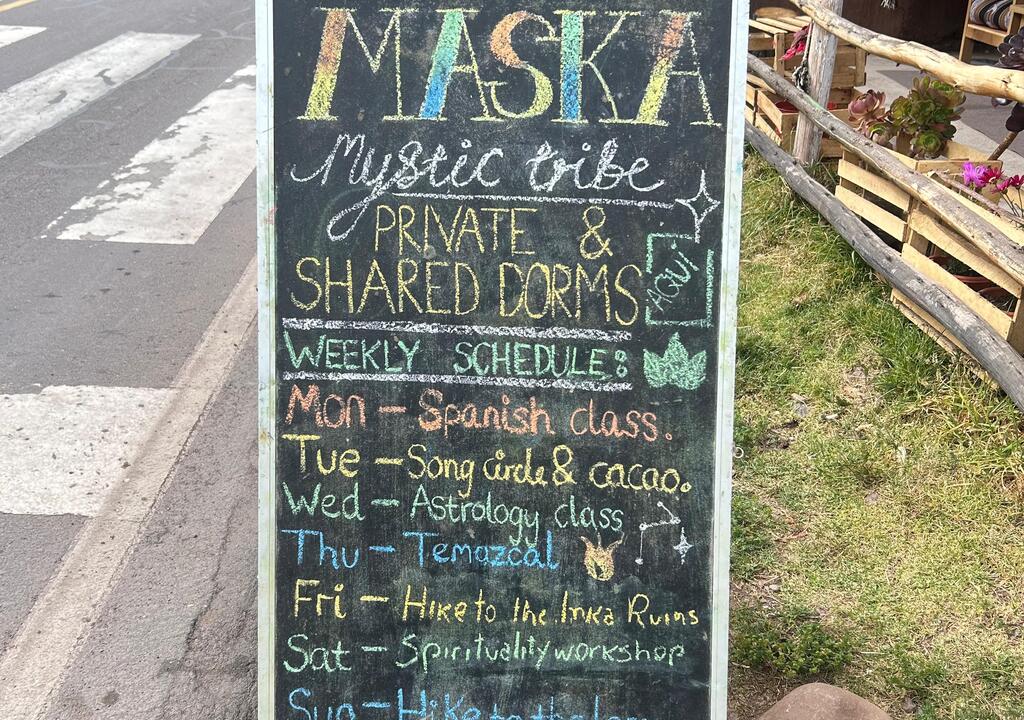 MASKA
Mystic tribe
PRIVATE &
SHARED DORMS
AQUÍ
WEEKLY SCHEDULE:
Mon - Spanish class.
Tue - Song circle & cacao.
Wed - Astrology class
Thu - Temazcal
Fri - Hike to the Inka Ruins
Sat - Spirituality workshop
Sun - Hike to the